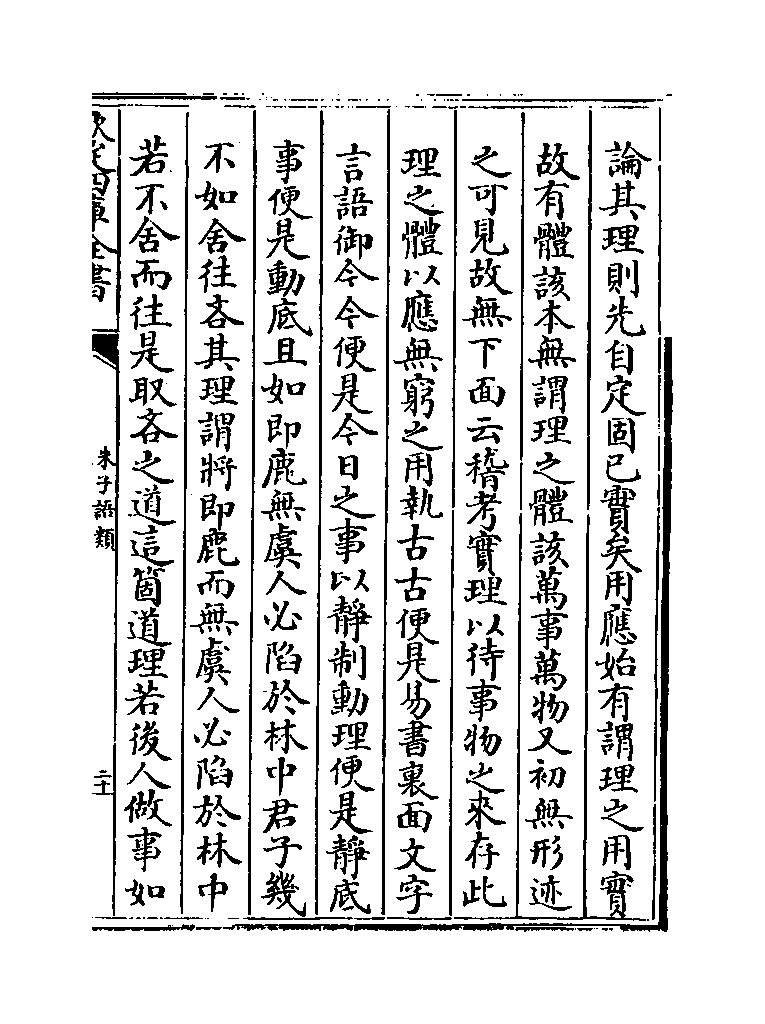 論其理則先自定固已實矣用應始有謂理之用實
故有體該本無謂理之體該萬事萬物又初無形迹
之可見故無下面云稽考實理以待事物之來存此
理之體以應無窮之用執古古便是易書裏面文字
言語御今今便是今日之事以靜制動理便是靜底
事便是動底且如即鹿無虞人必陷於林中君子幾
不如舍往吝其理謂將即鹿而無虞人必陷於林中
若不舍而往是取吝之道這箇道理若後人做事如
欽定四庫全書
朱子語類
二十